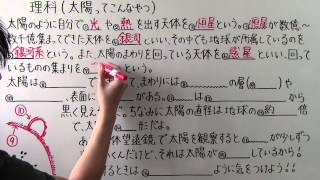 理科(太陽ってこんなやつ)
太陽のように自分で①光や②熱を出す天体を③恒星といい、③恒星が数億〜
数千億集まってできた天体を④銀河といい、その中でも地球が所属しているのを
⑤銀河系という。また、太陽のまわりを回っている天体を⑥惑星といい、回って
いるものの集まりを⑦という。
太陽は⑧で、まわりには の層(⑨)や
、表面には がある。 は から
黒く見えるゾ。ちなみに太陽の直径は地球の 約
倍で、 形だよ。
天体望遠鏡で太陽を観察すると が少しずつ
いくんだけど、それは太陽が しているから!
には気をつけよう!!
⑩
⑨